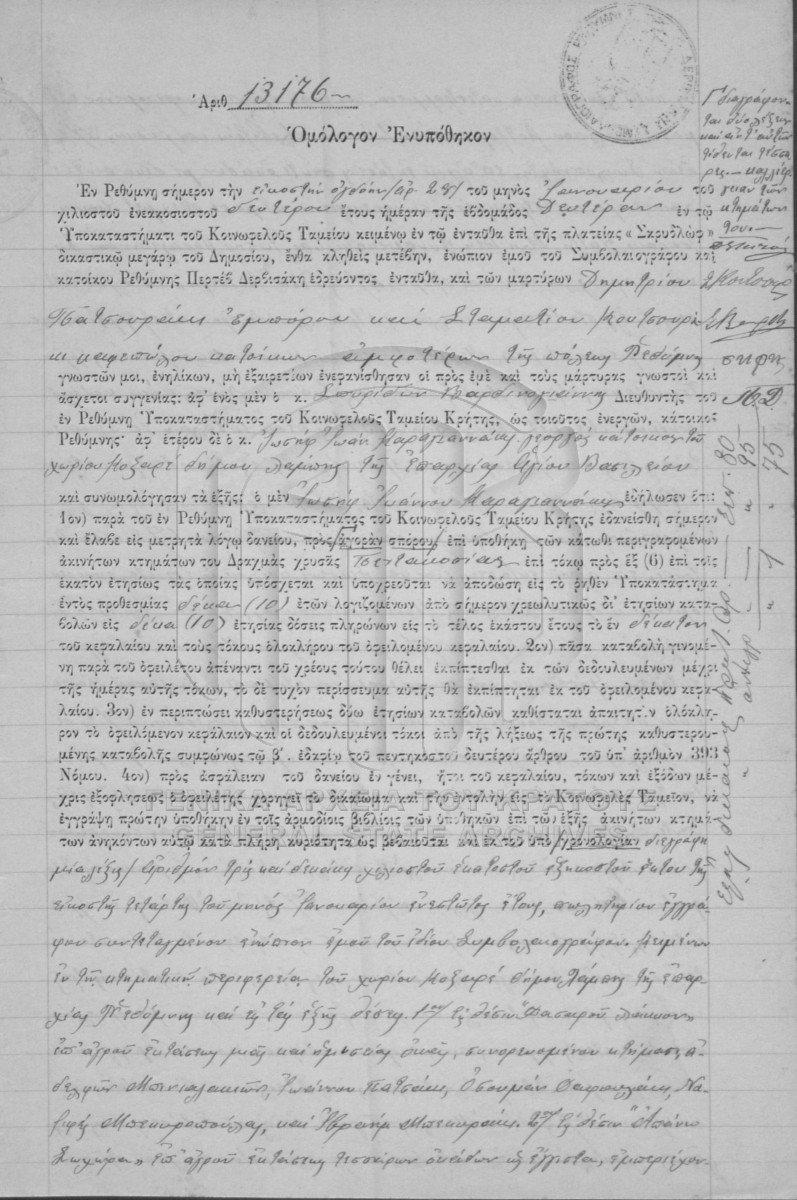 Ἀριθ. 13176
Ὁμόλογον Ἐνυπόθηκον
Ἐν Ρεθύμνῃ σήμερον τὴν εἰκοστὴν ὀγδόην /ἀρ. 28/ τοῦ μηνὸς Ἰανουαρίου τοῦ
χιλιοστοῦ ἐνεακοσιοστοῦ δευτέρου ἔτους ἡμέραν τῆς ἑβδομάδος Δευτέραν ἐν τῷ
Ὑποκαταστήματι τοῦ Κοινωφελοῦς Ταμείου κειμένῳ ἐν τῷ ἐνταῦθα ἐπὶ τῆς πλατείας «Σκρυδλὼφ»
δικαστικῷ μεγάρῳ τοῦ Δημοσίου, ἔνθα κληθεὶς μετέβην, ἐνώπιον ἐμοῦ τοῦ Συμβολαιογράφου καὶ
κατοίκου Ρεθύμνης Περτὲβ Δερβισάκη ἑδρεύοντος ἐνταῦθα, καὶ τῶν μαρτύρων Δημητρίου
Πατσουράκη ἐμπόρου καὶ Σταματίου Κουτσουρά
κι καφεπώλου κατοίκων ἀμφοτέρων τῆς πόλεως Ρεθύμνης
γνωστῶν μοι, ἐνηλίκων, μὴ ἐξαιρετέων ἐνεφανίσθησαν οἱ πρὸς ἐμὲ καὶ τοὺς μάρτυρας γνωστοὶ καὶ
ἄσχετοι συγγενίας: ἀφ' ἑνὸς μὲν ὁ κ. Σπυρίδων Βαρδινογιάννης Διευθυντὴς τοῦ
ἐν Ρεθύμνῃ Ὑποκαταστήματος τοῦ Κοινωφελοῦς Ταμείου Κρήτης, ὡς τοιοῦτος ἐνεργῶν, κάτοικος
Ρεθύμνης· ἀφ' ἑτέρου δὲ ὁ κ. Ἰωσὴφ Ἰωάν. Καραγιαννάκης γεωργὸς κάτοικος τοῦ
χωρίου Μοξαρὲ δήμου Λάμπης τῆς Ἐπαρχίας Ἁγίου Βασιλείου
καὶ συνωμολόγησαν τὰ ἑξῆς: ὁ μὲν Ἰωσὴφ Ἰωάννου Καραγιαννάκης ἐδήλωσεν ὅτι:
1ον) παρὰ τοῦ ἐν Ρεθύμνῃ Ὑποκαταστήματος τοῦ Κοινωφελοῦς Ταμείου Κρήτης ἐδανείσθη σήμερον
καὶ ἔλαβε εἰς μετρητὰ λόγῳ δανείου, πρὸς ἀγορὰν σπόρου, ἐπὶ ὑποθήκῃ τῶν κάτωθι περιγραφομένων
ἀκινήτων κτημάτων του Δραχμὰς χρυσᾶς Πεντακοσίας ἐπὶ τόκῳ πρὸς ἓξ (6) ἐπὶ τοῖς
ἑκατὸν ἐτησίως τὰς ὁποίας ὑπόσχεται καὶ ὑποχρεοῦται νὰ ἀποδώσῃ εἰς τὸ ῥηθὲν Ὑποκατάστημα
ἐντὸς προθεσμίας δέκα (10) ἐτῶν λογιζομένων ἀπὸ σήμερον χρεωλυτικῶς δι' ἐτησίων κατα-
βολῶν εἰς δέκα (10) ἐτησίας δόσεις πληρώνων εἰς τὸ τέλος ἑκάστου ἔτους τὸ ἓν δέκατον
τοῦ κεφαλαίου καὶ τοὺς τόκους ὁλοκλήρου τοῦ ὀφειλομένου κεφαλαίου. 2ον) πᾶσα καταβολὴ γινομέ-
νη παρὰ τοῦ ὀφειλέτου ἀπέναντι τοῦ χρέους τούτου θέλει ἐκπίπτεσθαι ἐκ τῶν δεδουλευμένων μέχρι
τῆς ἡμέρας αὐτῆς τόκων, τὸ δὲ τυχὸν περίσσευμα αὐτῆς θὰ ἐκπίπτηται ἐκ τοῦ ὀφειλομένου κεφα-
λαίου. 3ον) ἐν περιπτώσει καθυστερήσεως δύω ἐτησίων καταβολῶν καθίσταται ἀπαιτητὸν ὁλόκλη-
ρον τὸ ὀφειλόμενον κεφάλαιον καὶ οἱ δεδουλευμένοι τόκοι ἀπὸ τῆς λήξεως τῆς πρώτης καθυστερου-
μένης καταβολῆς συμφώνως τῷ β'. ἐδαφίῳ τοῦ πεντηκοστοῦ δευτέρου ἄρθρου τοῦ ὑπ' ἀριθμὸν 393
Νόμου. 4ον) πρὸς ἀσφάλειαν τοῦ δανείου ἐν γένει, ἤτοι τοῦ κεφαλαίου, τόκων καὶ ἐξόδων μέ-
χρις ἐξοφλήσεως ὁ ὀφειλέτης χορηγεῖ τὸ δικαίωμα καὶ τὴν ἐντολὴν εἰς τὸ Κοινωφελὲς Ταμεῖον, νὰ
ἐγγράψῃ πρώτην ὑποθήκην ἐν τοῖς ἁρμοδίοις βιβλίοις τῶν ὑποθηκῶν ἐπὶ τῶν ἑξῆς ἀκινήτων κτημά-
των ἀνηκόντων αὐτῷ κατὰ πλήρη κυριότητα ὡς βεβαιοῦται καὶ ἐκ τοῦ ὑπὸ /χρονολογίαν διεγράφη
μία λέξις/ ἀριθμὸν τρὶς καὶ δεκάκις χιλιοστοῦ ἑκατοστοῦ ἑξηκοστοῦ ἕκτου τῆς
εἰκοστῆς τετάρτης τοῦ μηνὸς Ἰανουαρίου ἐνεστῶτος ἔτους, πωλητηρίου ἐγγρά-
φου συντεταγμένου ἐνώπιον ἐμοῦ τοῦ ἰδίου Συμβολαιογράφου. Κειμένων
ἐν τῇ κτηματικῇ περιφερείᾳ τοῦ χωρίου Μοξαρὲ δήμου Λάμπης τῆς ἐπαρ-
χίας Ρεθύμνης καὶ εἰς τὰς ἑξῆς θέσεις. 1ον/ Εἰς θέσιν
ἐπ' ἀγροῦ ἐκτάσεως μιᾶς καὶ ἡμισείας ὀκᾶς, συνορευομένου κτήμασι ἀ-
δελφῶν Ἰωάννου Πατσάκη, Ὀσουμὰν
καὶ Ἰβραὴμ Μπεκυράκη. 2ον/ Εἰς θέσιν "Ἀπάνω
Σωχώρα" ἐπ' ἀγροῦ ἐκτάσεως τεσσάρων ὀκάδων ὡς ἔγγιστα, ἐμπεριέχον-
Γ' διαγράφον-
ται δύο λέξεις
καὶ ἀντ' αὐτῶν
τίθενται τέσσα-
ρες καλλιέρ
γειαν τῶν
κτημάτων
του
ΓΕΝΙΚΑ ΑΡΧΕΙΑ ΤΟΥ ΚΡΑΤΟΥΣ
GENERAL STATE ARCHIVES